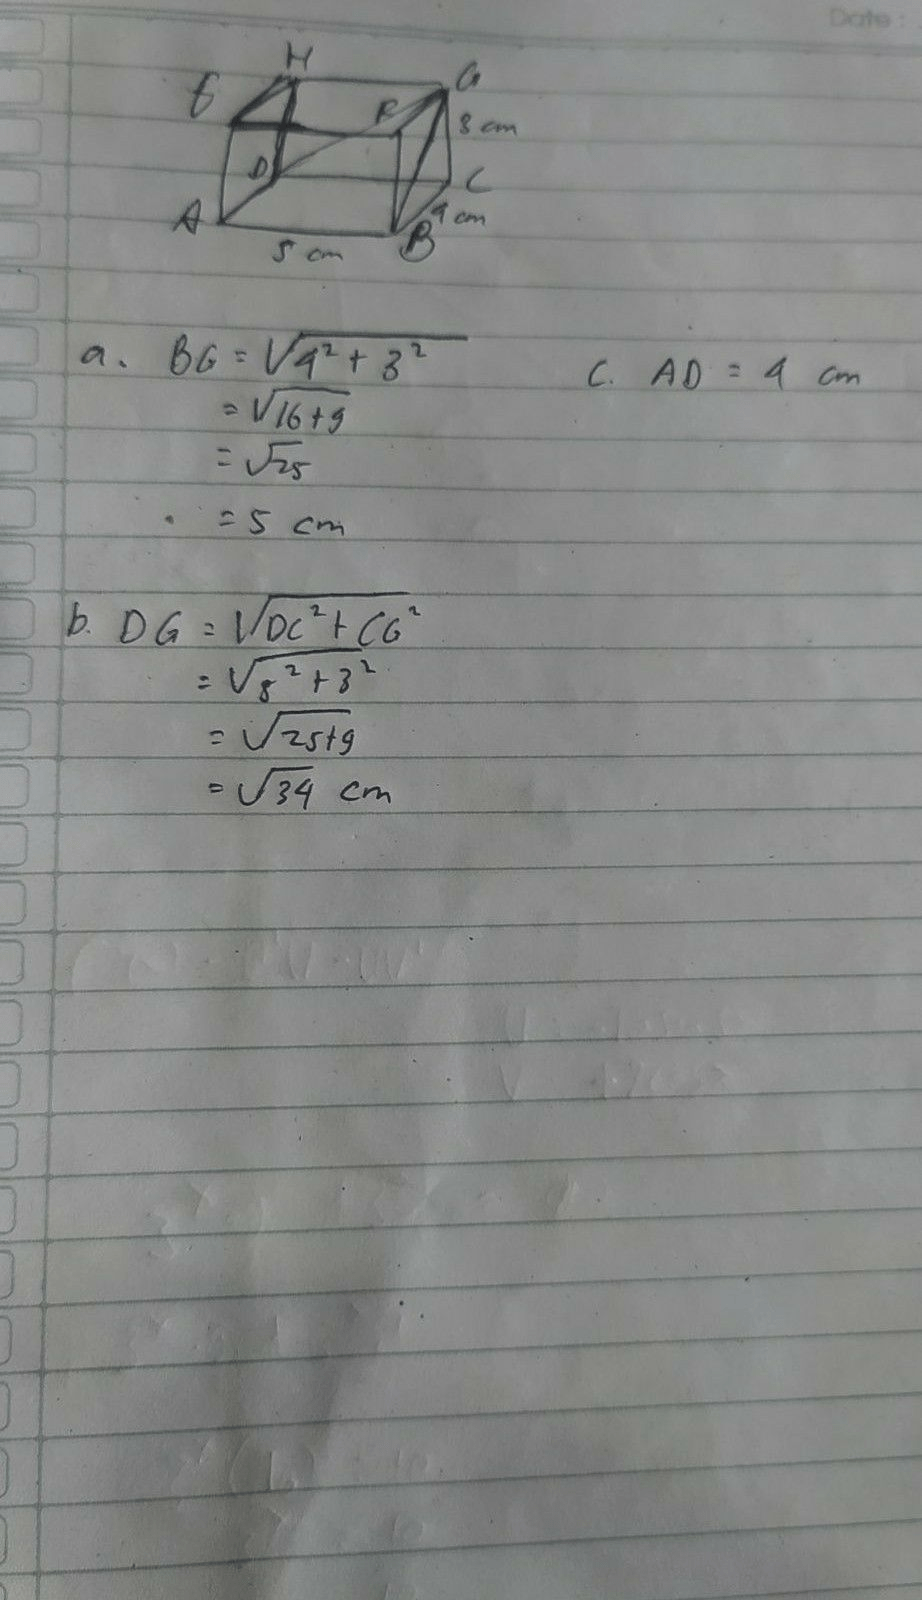 Date :
H
E
F
G
3 cm
D
C
A
4 cm
B
5 cm
a. BG = √4² + 3²
= √16+9
= √25
= 5 cm
C. AD = 4 cm
b. DG = √DC² + CG²
= √5² + 3²
= √25+9
= √34 cm